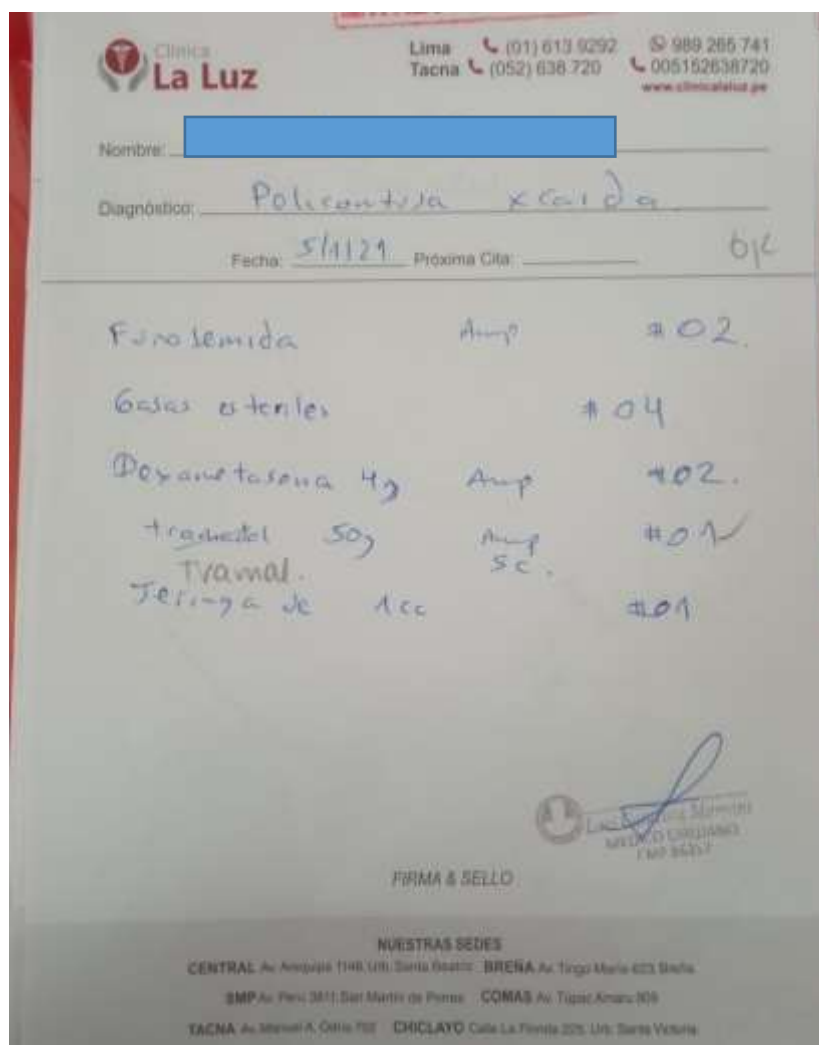 Clínica
La Luz
Lima (01) 613 9292 989 265 741
Tacna (052) 638 720 005152638720
www.clinicalaluz.pe
Nombre:
Diagnóstico: Policontusa x caida
Fecha: 5/1/21 Próxima Cita:
Furosemida Amp #02.
Gasas esteriles #04
Dexametasona 4g Amp #02.
tramadol 50g Amp #01
Tramal. SC.
Jeringa de 1cc #01
MEDICO CIRUJANO
FIRMA & SELLO
NUESTRAS SEDES
CENTRAL Av. Arequipa 1148, Urb. Santa Beatriz BREÑA Av. Tingo María 623 Breña
SMP Av. Perú 3811 San Martín de Porres COMAS Av. Túpac Amaru 809
TACNA Av. Manuel A. Odría 702 CHICLAYO Calle La Florida 225, Urb. Santa Victoria